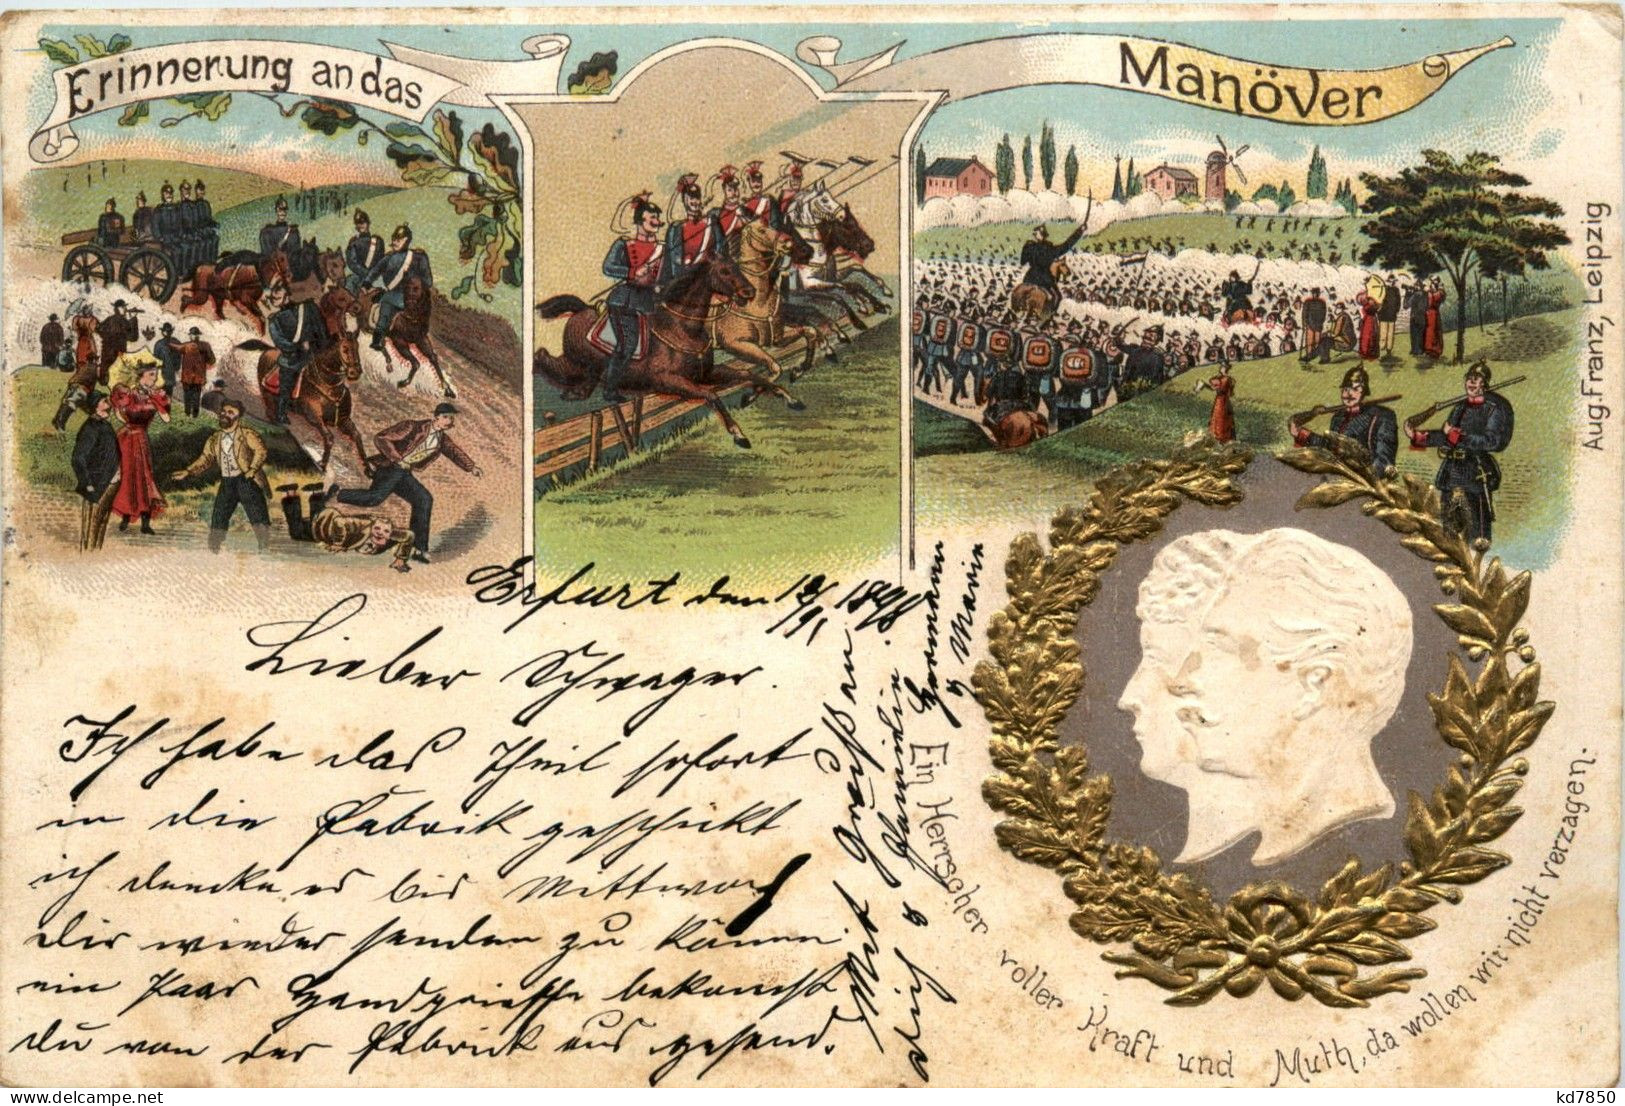 Erinnerung an das
Manöver
Aug. Franz, Leipzig
Erfurt den 12/9, 1898
Lieber Schwager.
Ich habe das Theil sofort
in die Fabrik geschickt
ich dencke es bis Mittwoch
dir wieder senden zu könen.
ein Paar Handgrieffe bekomst
du von der Fabrick aus gesend.
Mit Gruss an
dich &
Hermann
& Marie
Ein Herrscher voller Kraft und Muth, da wollen wir nicht verzagen.
kd7850